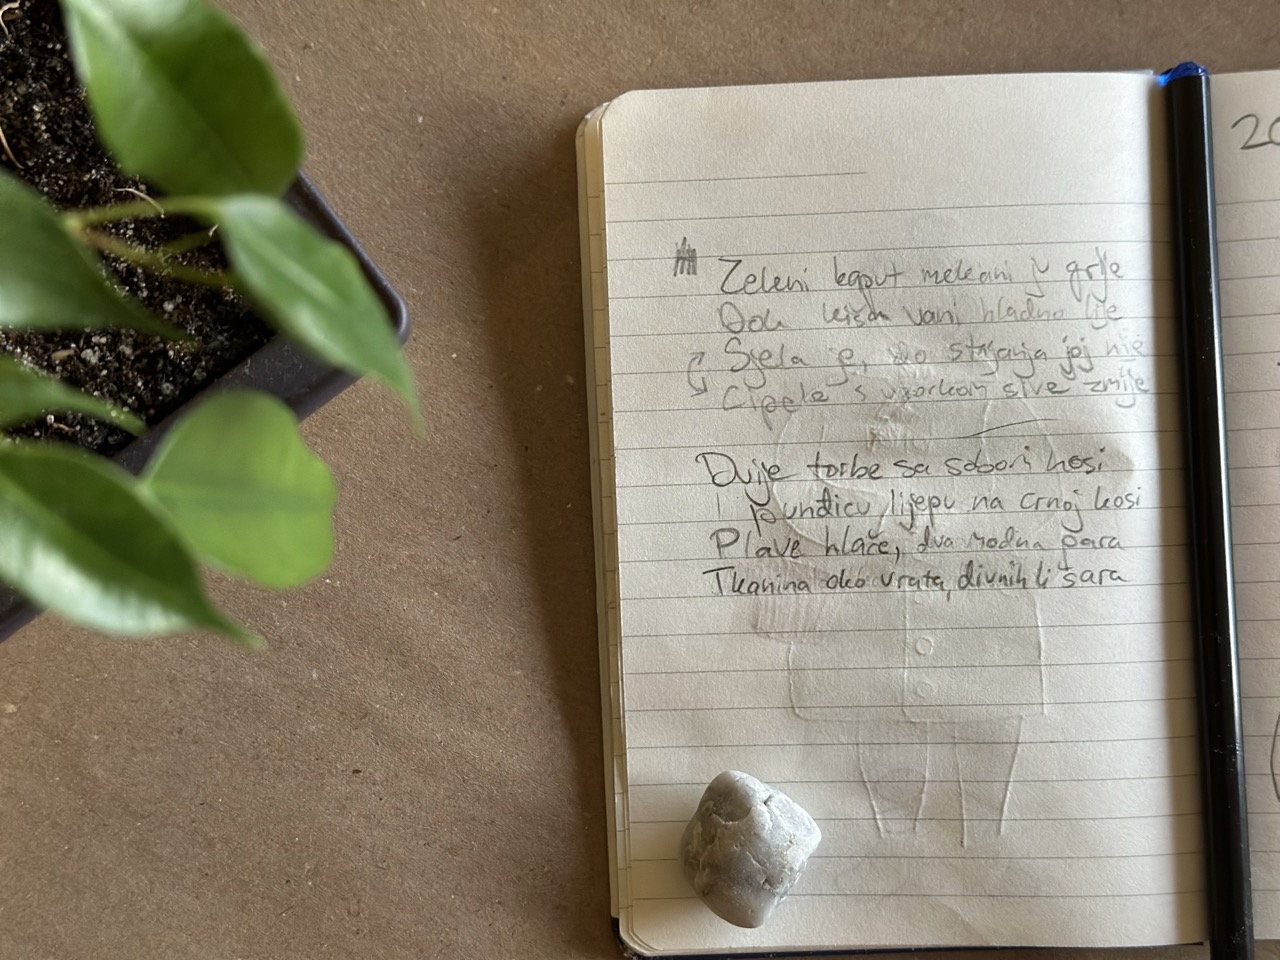 20
Zeleni kaput mekani ju grije
Dok kiša vani hladno lije
Sjela je, do stajanja joj nije
Cipele s uzorkom sive zmije
Dvije torbe sa sobom nosi
I punđicu lijepu na crnoj kosi
Plave hlače, dva modna para
Tkanina oko vrata, divnih li šara